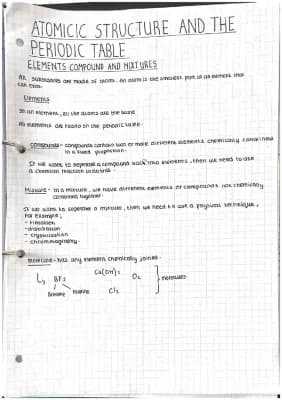 ATOMICIC STRUCTURE AND THE
PERIODIC TABLE
ELEMENTS COMPOUND AND MIXTURES
All substances are made of atoms. An atom is the smallest part of an element that
can exist.
Elements
In an element, all the atoms are the same
All elements are found on the periodic table.
Compounds - compounds contain two or more different elements chemically combined
in a fixed proportion.
If we want to separate a compound back into elements, then we need to use
a chemical reaction to do this.
Mixture - in a mixture, we have different elements or compounds not chemically
combined together.
If we want to separate a mixture, then we need to use a physical technique,
for example,
- filtration
- distillation
- crystallisation
- chromatography.
molecule - has any element chemically joined.
BF3 Ca(OH)2 O2 Cl2 } molecules
Fluorine